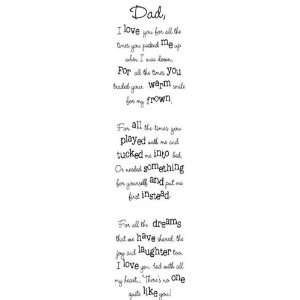 Dad,
I love you for all the
times you picked me up
when I was down,
For all the times you
traded your warm smile
for my frown.
For all the times you
played with me and
tucked me into bed,
Or needed something
for yourself and put me
first instead.
For all the dreams
that we have shared, the
joy and laughter too.
I love you Dad with all
my heart... "There's no one
quite like you!